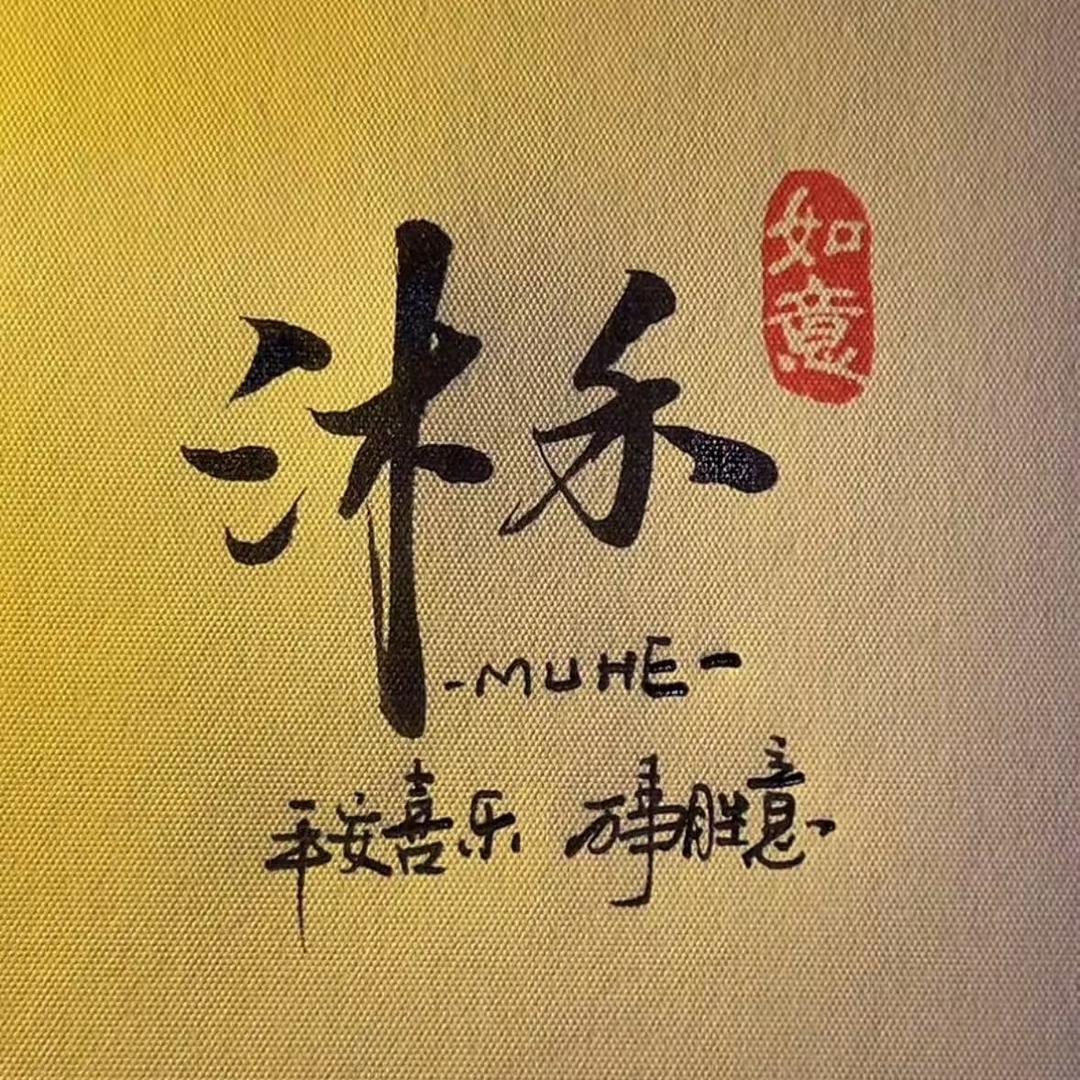 沐禾
如意
-MUHE-
平安喜乐 万事胜意